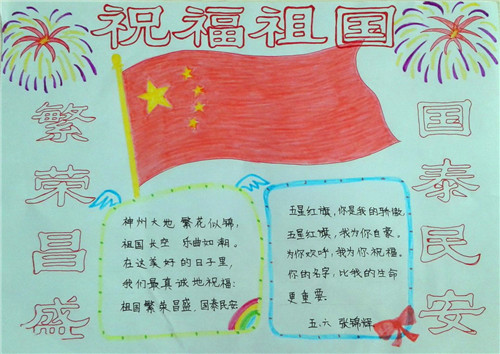 祝福祖国
繁荣昌盛
国泰民安
神州大地 繁花似锦,
祖国长空 乐曲如潮。
在这美好的日子里,
我们最真诚地祝福:
祖国繁荣昌盛、国泰民安
五星红旗,你是我的骄傲
五星红旗,我为你自豪。
为你欢呼,我为你祝福。
你的名字,比我的生命
更重要
五、六 张锦辉